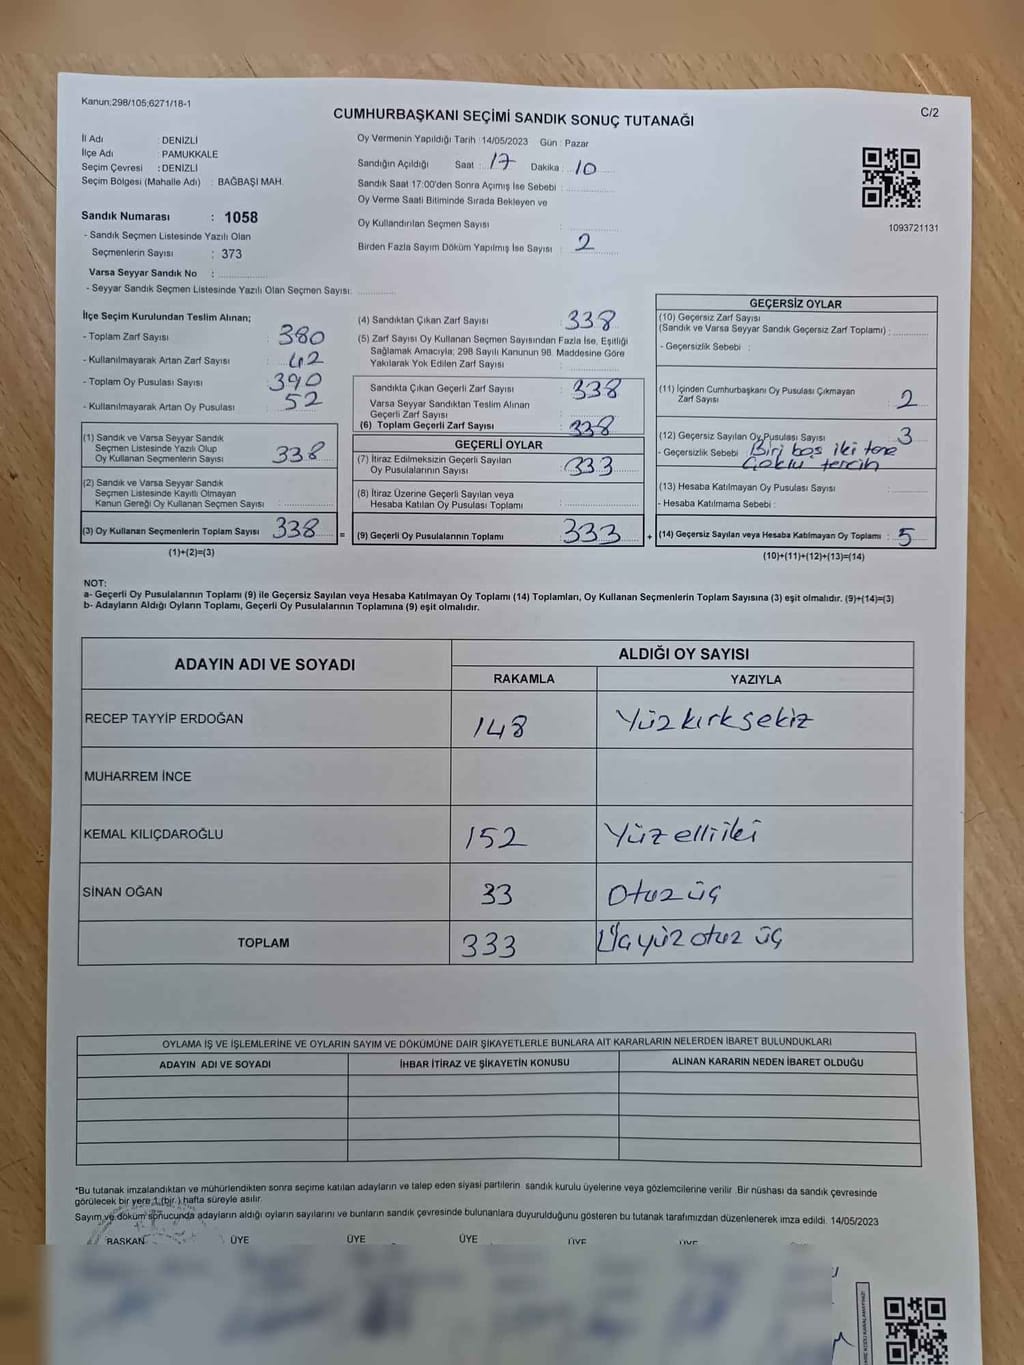 Kanun:298/105;6271/18-1
C/2
CUMHURBAŞKANI SEÇİMİ SANDIK SONUÇ TUTANAĞI
İl Adı : DENİZLİ
İlçe Adı : PAMUKKALE
Seçim Çevresi : DENİZLİ
Seçim Bölgesi (Mahalle Adı) : BAĞBAŞI MAH.
Sandık Numarası : 1058
- Sandık Seçmen Listesinde Yazılı Olan
Seçmenlerin Sayısı : 373
Varsa Seyyar Sandık No :
- Seyyar Sandık Seçmen Listesinde Yazılı Olan Seçmen Sayısı:
Oy Vermenin Yapıldığı Tarih : 14/05/2023 Gün : Pazar
Sandığın Açıldığı Saat : 17 Dakika : 10
Sandık Saat 17:00'den Sonra Açımış İse Sebebi :
Oy Verme Saati Bitiminde Sırada Bekleyen ve
Oy Kullandırılan Seçmen Sayısı :
Birden Fazla Sayım Döküm Yapılmış İse Sayısı : 2
1093721131
İlçe Seçim Kurulundan Teslim Alınan;
- Toplam Zarf Sayısı : 380
- Kullanılmayarak Artan Zarf Sayısı : 42
- Toplam Oy Pusulası Sayısı : 390
- Kullanılmayarak Artan Oy Pusulası : 52
(1) Sandık ve Varsa Seyyar Sandık
Seçmen Listesinde Yazılı Olup
Oy Kullanan Seçmenlerin Sayısı : 338
(2) Sandık ve Varsa Seyyar Sandık
Seçmen Listesinde Kayıtlı Olmayan
Kanun Gereği Oy Kullanan Seçmen Sayısı :
(3) Oy Kullanan Seçmenlerin Toplam Sayısı : 338
(1)+(2)=(3)
(4) Sandıktan Çıkan Zarf Sayısı : 338
(5) Zarf Sayısı Oy Kullanan Seçmen Sayısından Fazla İse, Eşitliği
Sağlamak Amacıyla; 298 Sayılı Kanunun 98. Maddesine Göre
Yakılarak Yok Edilen Zarf Sayısı :
Sandıkta Çıkan Geçerli Zarf Sayısı : 338
Varsa Seyyar Sandıktan Teslim Alınan
Geçerli Zarf Sayısı :
(6) Toplam Geçerli Zarf Sayısı : 338
GEÇERLİ OYLAR
(7) İtiraz Edilmeksizin Geçerli Sayılan
Oy Pusulalarının Sayısı : 333
(8) İtiraz Üzerine Geçerli Sayılan veya
Hesaba Katılan Oy Pusulası Toplamı :
= (9) Geçerli Oy Pusulalarının Toplamı : 333
GEÇERSİZ OYLAR
(10) Geçersiz Zarf Sayısı
(Sandık ve Varsa Seyyar Sandık Geçersiz Zarf Toplamı) :
- Geçersizlik Sebebi :
(11) İçinden Cumhurbaşkanı Oy Pusulası Çıkmayan
Zarf Sayısı : 2
(12) Geçersiz Sayılan Oy Pusulası Sayısı : 3
- Geçersizlik Sebebi : Biri boş iki tene
Çoklu tercih
(13) Hesaba Katılmayan Oy Pusulası Sayısı :
- Hesaba Katılmama Sebebi :
+ (14) Geçersiz Sayılan veya Hesaba Katılmayan Oy Toplamı : 5
(10)+(11)+(12)+(13)=(14)
NOT:
a- Geçerli Oy Pusulalarının Toplamı (9) ile Geçersiz Sayılan veya Hesaba Katılmayan Oy Toplamı (14) Toplamları, Oy Kullanan Seçmenlerin Toplam Sayısına (3) eşit olmalıdır. (9)+(14)=(3)
b- Adayların Aldığı Oyların Toplamı, Geçerli Oy Pusulalarının Toplamına (9) eşit olmalıdır.
ADAYIN ADI VE SOYADI ALDIĞI OY SAYISI
RAKAMLA YAZIYLA
RECEP TAYYİP ERDOĞAN 148 Yüz kırk sekiz
MUHARREM İNCE
KEMAL KILIÇDAROĞLU 152 Yüz elli iki
SİNAN OĞAN 33 Otuz üç
TOPLAM 333 Üçyüz otuz üç
OYLAMA İŞ VE İŞLEMLERİNE VE OYLARIN SAYIM VE DÖKÜMÜNE DAİR ŞİKAYETLERLE BUNLARA AİT KARARLARIN NELERDEN İBARET BULUNDUKLARI
ADAYIN ADI VE SOYADI İHBAR İTİRAZ VE ŞİKAYETİN KONUSU ALINAN KARARIN NEDEN İBARET OLDUĞU
*Bu tutanak imzalandıktan ve mühürlendikten sonra seçime katılan adayların ve talep eden siyasi partilerin sandık kurulu üyelerine veya gözlemcilerine verilir .Bir nüshası da sandık çevresinde
görülecek bir yere 1 (bir.) hafta süreyle asılır.
Sayım ve döküm sonucunda adayların aldığı oyların sayılarını ve bunların sandık çevresinde bulunanlara duyurulduğunu gösteren bu tutanak tarafımızdan düzenlenerek imza edildi. 14/05/2023
BAŞKAN ÜYE ÜYE ÜYE ÜYE ÜYE